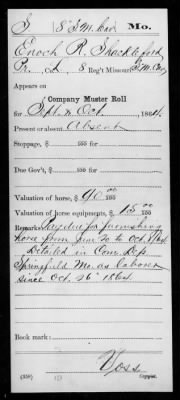 S 8 S.M. Cav. Mo.
Enoch R. Shackleford
Pvt., Co. 8 Reg't Missouri S. M. Cav.
Appears on
Company Muster Roll
for Sept. & Oct., 1864.
Present or absent Absent
Stoppage, $ 100 for
Due Gov't, $ 100 for
Valuation of horse, $ 90.00 100
Valuation of horse equipments, $ 15.00 100
Remarks: Pay due for furnishing
horse from June 30 to Oct 31/64.
Detailed in Com. Dep.
Springfield Mo. as laborer
since Oct. 26" 1864.
Book mark:
Voss
(358) Copyist.